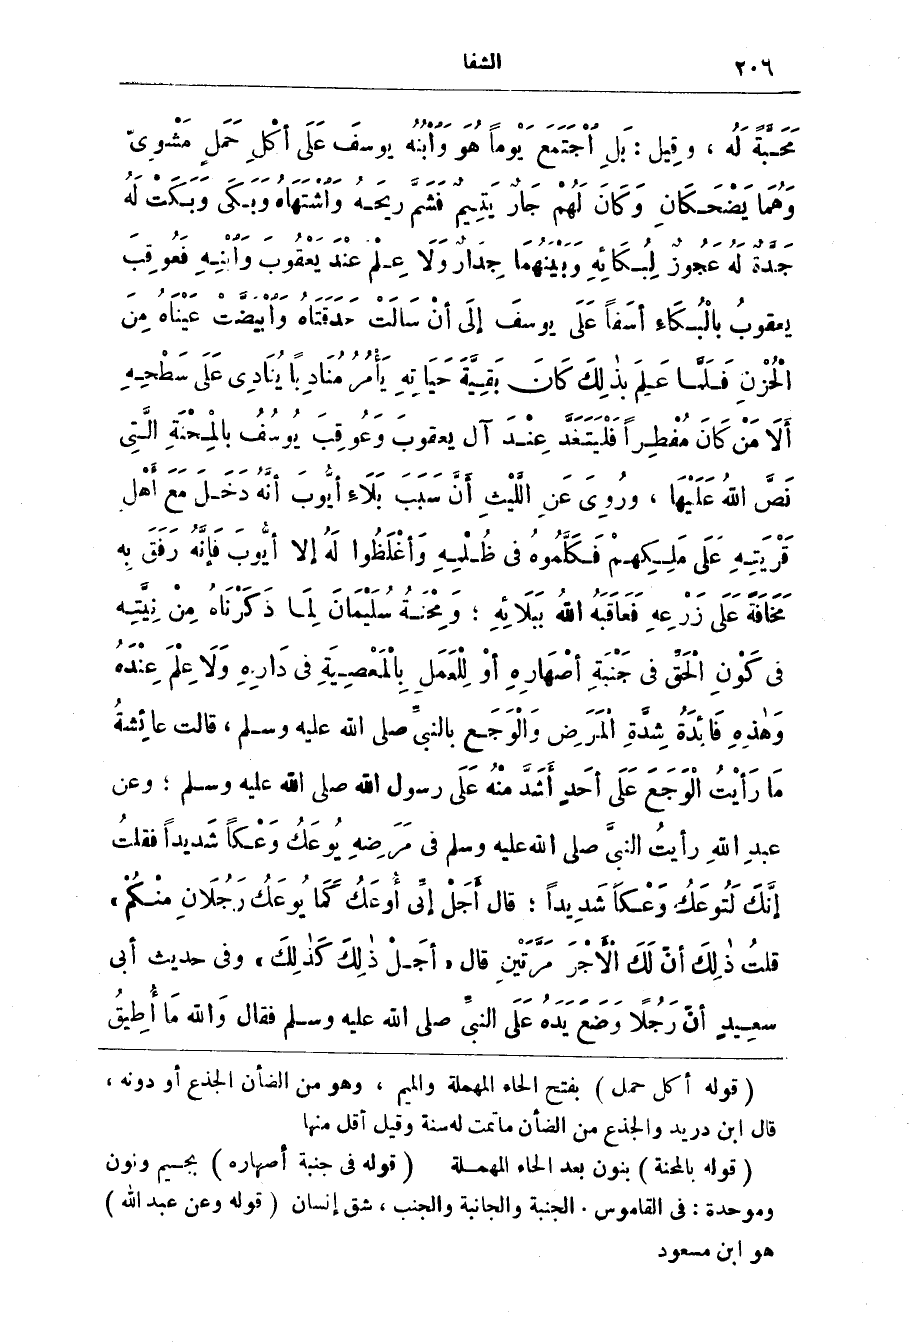 ٢٠٦ الشفا
مَحَبَّةً لَهُ ، وقِيل : بَلِ اجْتَمَعَ يَوْماً هُوَ وَابْنُهُ يوسفَ عَلَى أكْلِ حَمَلٍ مَشْوىّ
وَهُمَا يَضْحَكَانِ وَكَانَ لَهُمْ جَارٌ يَتِيمٌ فَشَمَّ رِيحَهُ وَاشْتَهَاهُ وَبَكَى وَبَكَتْ لَهُ
جَدَّةٌ لَهُ عَجُوزٌ لِبُكَائِهِ وَبَيْنَهُمَا جِدَارٌ وَلَا عِلْمَ عِنْدَ يَعْقُوبَ وَابْنِهِ فَعُوقِبَ
يعقوبُ بِالْبُكَاءِ أسَفاً عَلَى يوسفَ إلَى أنْ سَالَتْ حَدَقَتَاهُ وَابْيَضَّتْ عَيْنَاهُ مِنَ
الْحُزْنِ فَلَمَّا عَلِمَ بِذٰلِكَ كَانَ بَقِيَّةَ حَيَاتِهِ يَأْمُرُ مُنَادِياً يُنَادِى عَلَى سَطْحِهِ
أَلَا مَنْ كَانَ مُفْطِراً فَلْيَتَغَدَّ عِنْدَ آلِ يعقوبَ وَعُوقِبَ يُوسُفُ بِالْمِحْنَةِ الَّتِى
نَصَّ اللهُ عَلَيْهَا ، ورُوِىَ عَنِ اللَّيْثِ أنَّ سَبَبَ بَلَاءِ أيُّوبَ أنَّهُ دَخَلَ مَعَ أهْلِ
قَرْيَتِهِ عَلَى مَلِكِهِمْ فَكَلَّمُوهُ فى ظُلْمِهِ وَأغْلَظُوا لَهُ إلا أيُّوبَ فَإنَّهُ رَفَقَ بِهِ
مَخَافَةً عَلَى زَرْعِهِ فَعَاقَبَهُ اللهُ بِبَلَائِهِ ؛ وَمِحْنَةُ سُلَيْمَانَ لِمَا ذَكَرْنَاهُ مِنْ نِيَّتِهِ
فى كَوْنِ الْحَقِّ فى جَنْبَةِ أصْهَارِهِ أوْ لِلْعَمَلِ بِالْمَعْصِيَةِ فى دَارِهِ وَلَا عِلْمَ عِنْدَهُ
وَهٰذِهِ فَائِدَةُ شِدَّةِ الْمَرَضِ وَالْوَجَعِ بالنبىِّ صلى الله عليه وسلم ، قالت عائشةُ
مَا رَأيْتُ الْوَجَعَ عَلَى أحَدٍ أَشَدَّ مِنْهُ عَلَى رسول الله صلى الله عليه وسلم ؛ وعن
عبدِ اللهِ رأيتُ النبىَّ صلى الله عليه وسلم فى مَرَضِهِ يُوعَكُ وَعْكاً شَدِيداً فقلتُ
إنَّكَ لَتُوعَكُ وَعْكاً شَدِيداً ؛ قال أَجَلْ إنِّى أُوعَكُ كَمَا يُوعَكُ رَجُلَانِ مِنْكُمْ ،
قلتُ ذٰلِكَ أنّ لَكَ الْأَجْرَ مَرَّتَيْنِ قال « أجَلْ ذٰلِكَ كَذٰلِكَ » وفى حديث أبى
سعيدٍ أنّ رَجُلًا وَضَعَ يَدَهُ عَلَى النبىِّ صلى الله عليه وسلم فقال وَالله مَا أُطِيقُ
( قوله أكل حمل ) بفتح الحاء المهملة والميم ، وهو من الضأن الجذع أو دونه ،
قال ابن دريد والجذع من الضأن ماتمت له سنة وقيل أقل منها
( قوله بالمحنة ) بنون بعد الحاء المهملة ( قوله فى جنبة أصهاره ) بجيم ونون
وموحدة : فى القاموس . الجنبة والجانبة والجنب ، شق إنسان ( قوله وعن عبد الله )
هو ابن مسعود